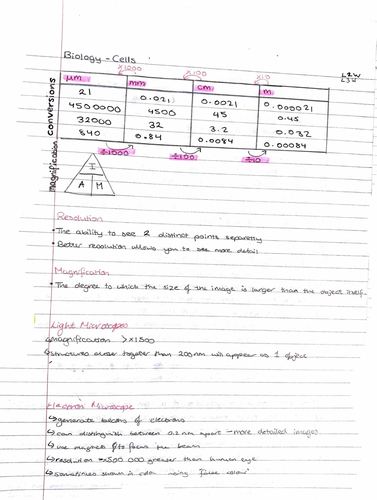 Biology - Cells
x1000 x100 x10
L2W
conversions
μm mm cm m
21 0.021 0.0021 0.000021
4500000 4500 45 0.45
32000 32 3.2 0.032
840 0.84 0.0084 0.00084
÷1000 ÷100 ÷10
Magnification
I
A M
Resolution
• The ability to see 2 distinct points separetly
• Better resolution allows you to see more detail
Magnification
• The degree to which the size of the image is larger than the object itself.
Light Microscopes
↳magnification > x1500
↳structures closer together than 200nm will appear as 1 object
Electron Microscope
↳generate beams of electrons
↳can distinguish between 0.2nm apart - more detailed images
↳use magnets to focus the beams
↳resolution x500 000 greater than human eye
↳sometimes shown in color using 'false colour'